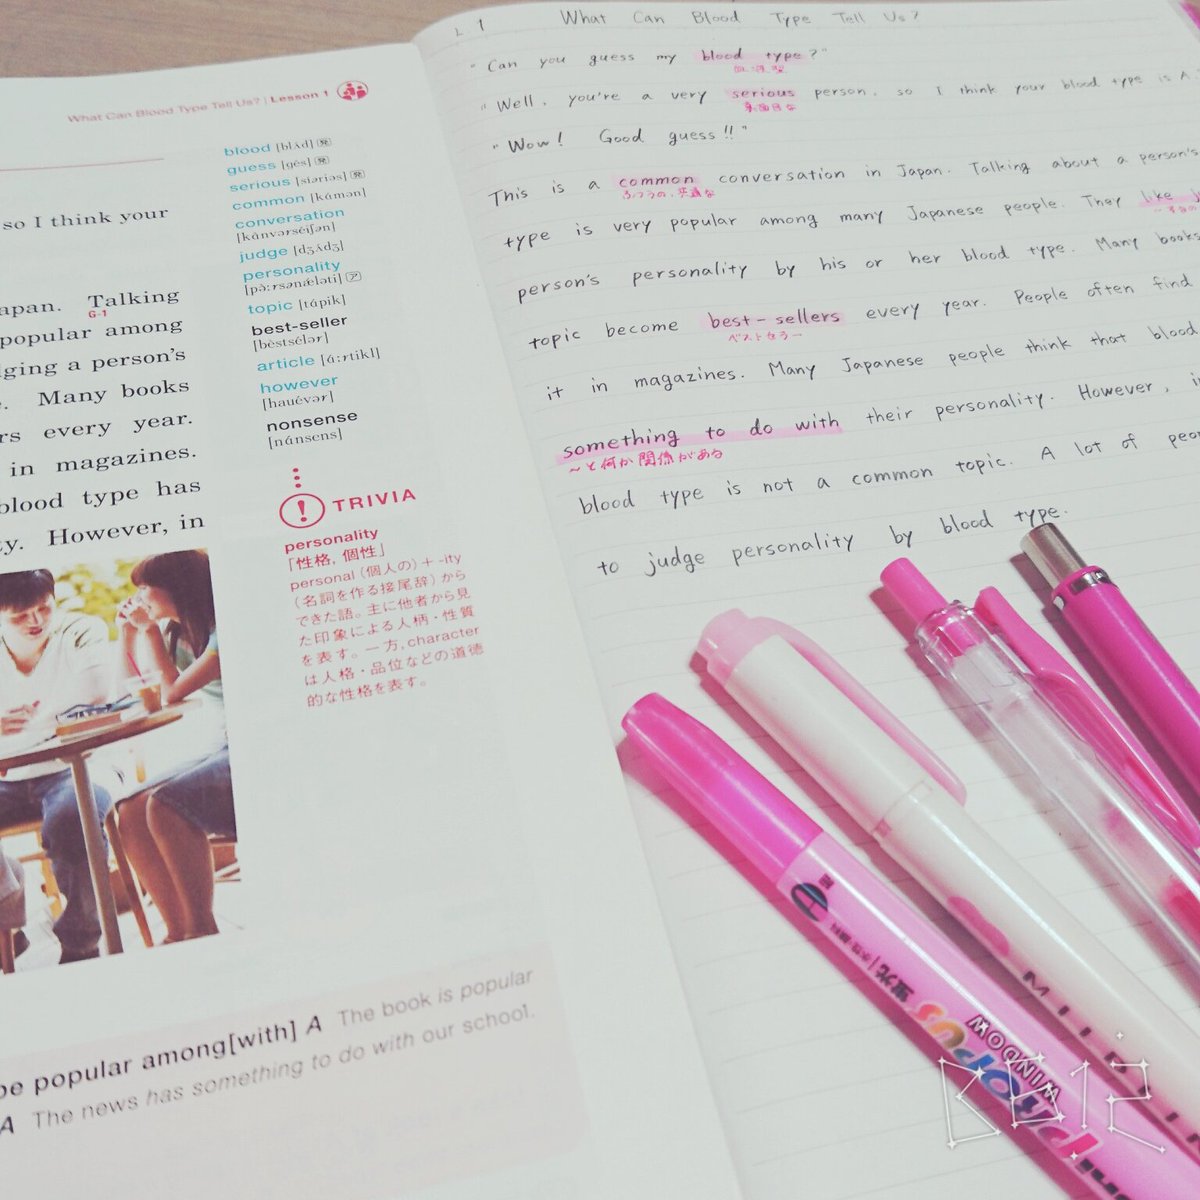 What Can Blood Type Tell Us? | Lesson 1
so I think your
apan. Talking
G-1
popular among
ging a person's
Many books
rs every year.
in magazines.
blood type has
y. However, in
blood [blʌ́d] 発
guess [gés] 発
serious [síəriəs] 発
common [kɑ́mən]
conversation
[kɑ̀nvərséiʃən]
judge [dʒʌ́dʒ]
personality
[pə̀ːrsənǽləti] ア
topic [tɑ́pik]
best-seller
[bèstsélər]
article [ɑ́ːrtikl]
however
[hauévər]
nonsense
[nɑ́nsens]
! TRIVIA
personality
「性格, 個性」
personal (個人の) + -ity
(名詞を作る接尾辞) から
できた語。主に他者から見
た印象による人柄・性質
を表す。一方, character
は人格・品位などの道徳
的な性格を表す。
be popular among[with] A The book is popular
A The news has something to do with our school.
L 1 What Can Blood Type Tell Us?
"Can you guess my blood type?"
血液型
"Well, you're a very serious person, so I think your blood type is A.
真面目な
"Wow! Good guess!!"
This is a common conversation in Japan. Talking about a person's
ふつうの、共通な
type is very popular among many Japanese people. They like
person's personality by his or her blood type. Many books
topic become best-sellers every year. People often find
ベストセラー
it in magazines. Many Japanese people think that blood
something to do with their personality. However, i
～と何か関係がある
blood type is not a common topic. A lot of peo
to judge personality by blood type.
蛍光
WINDOW
PROPUS
MILD
BB12